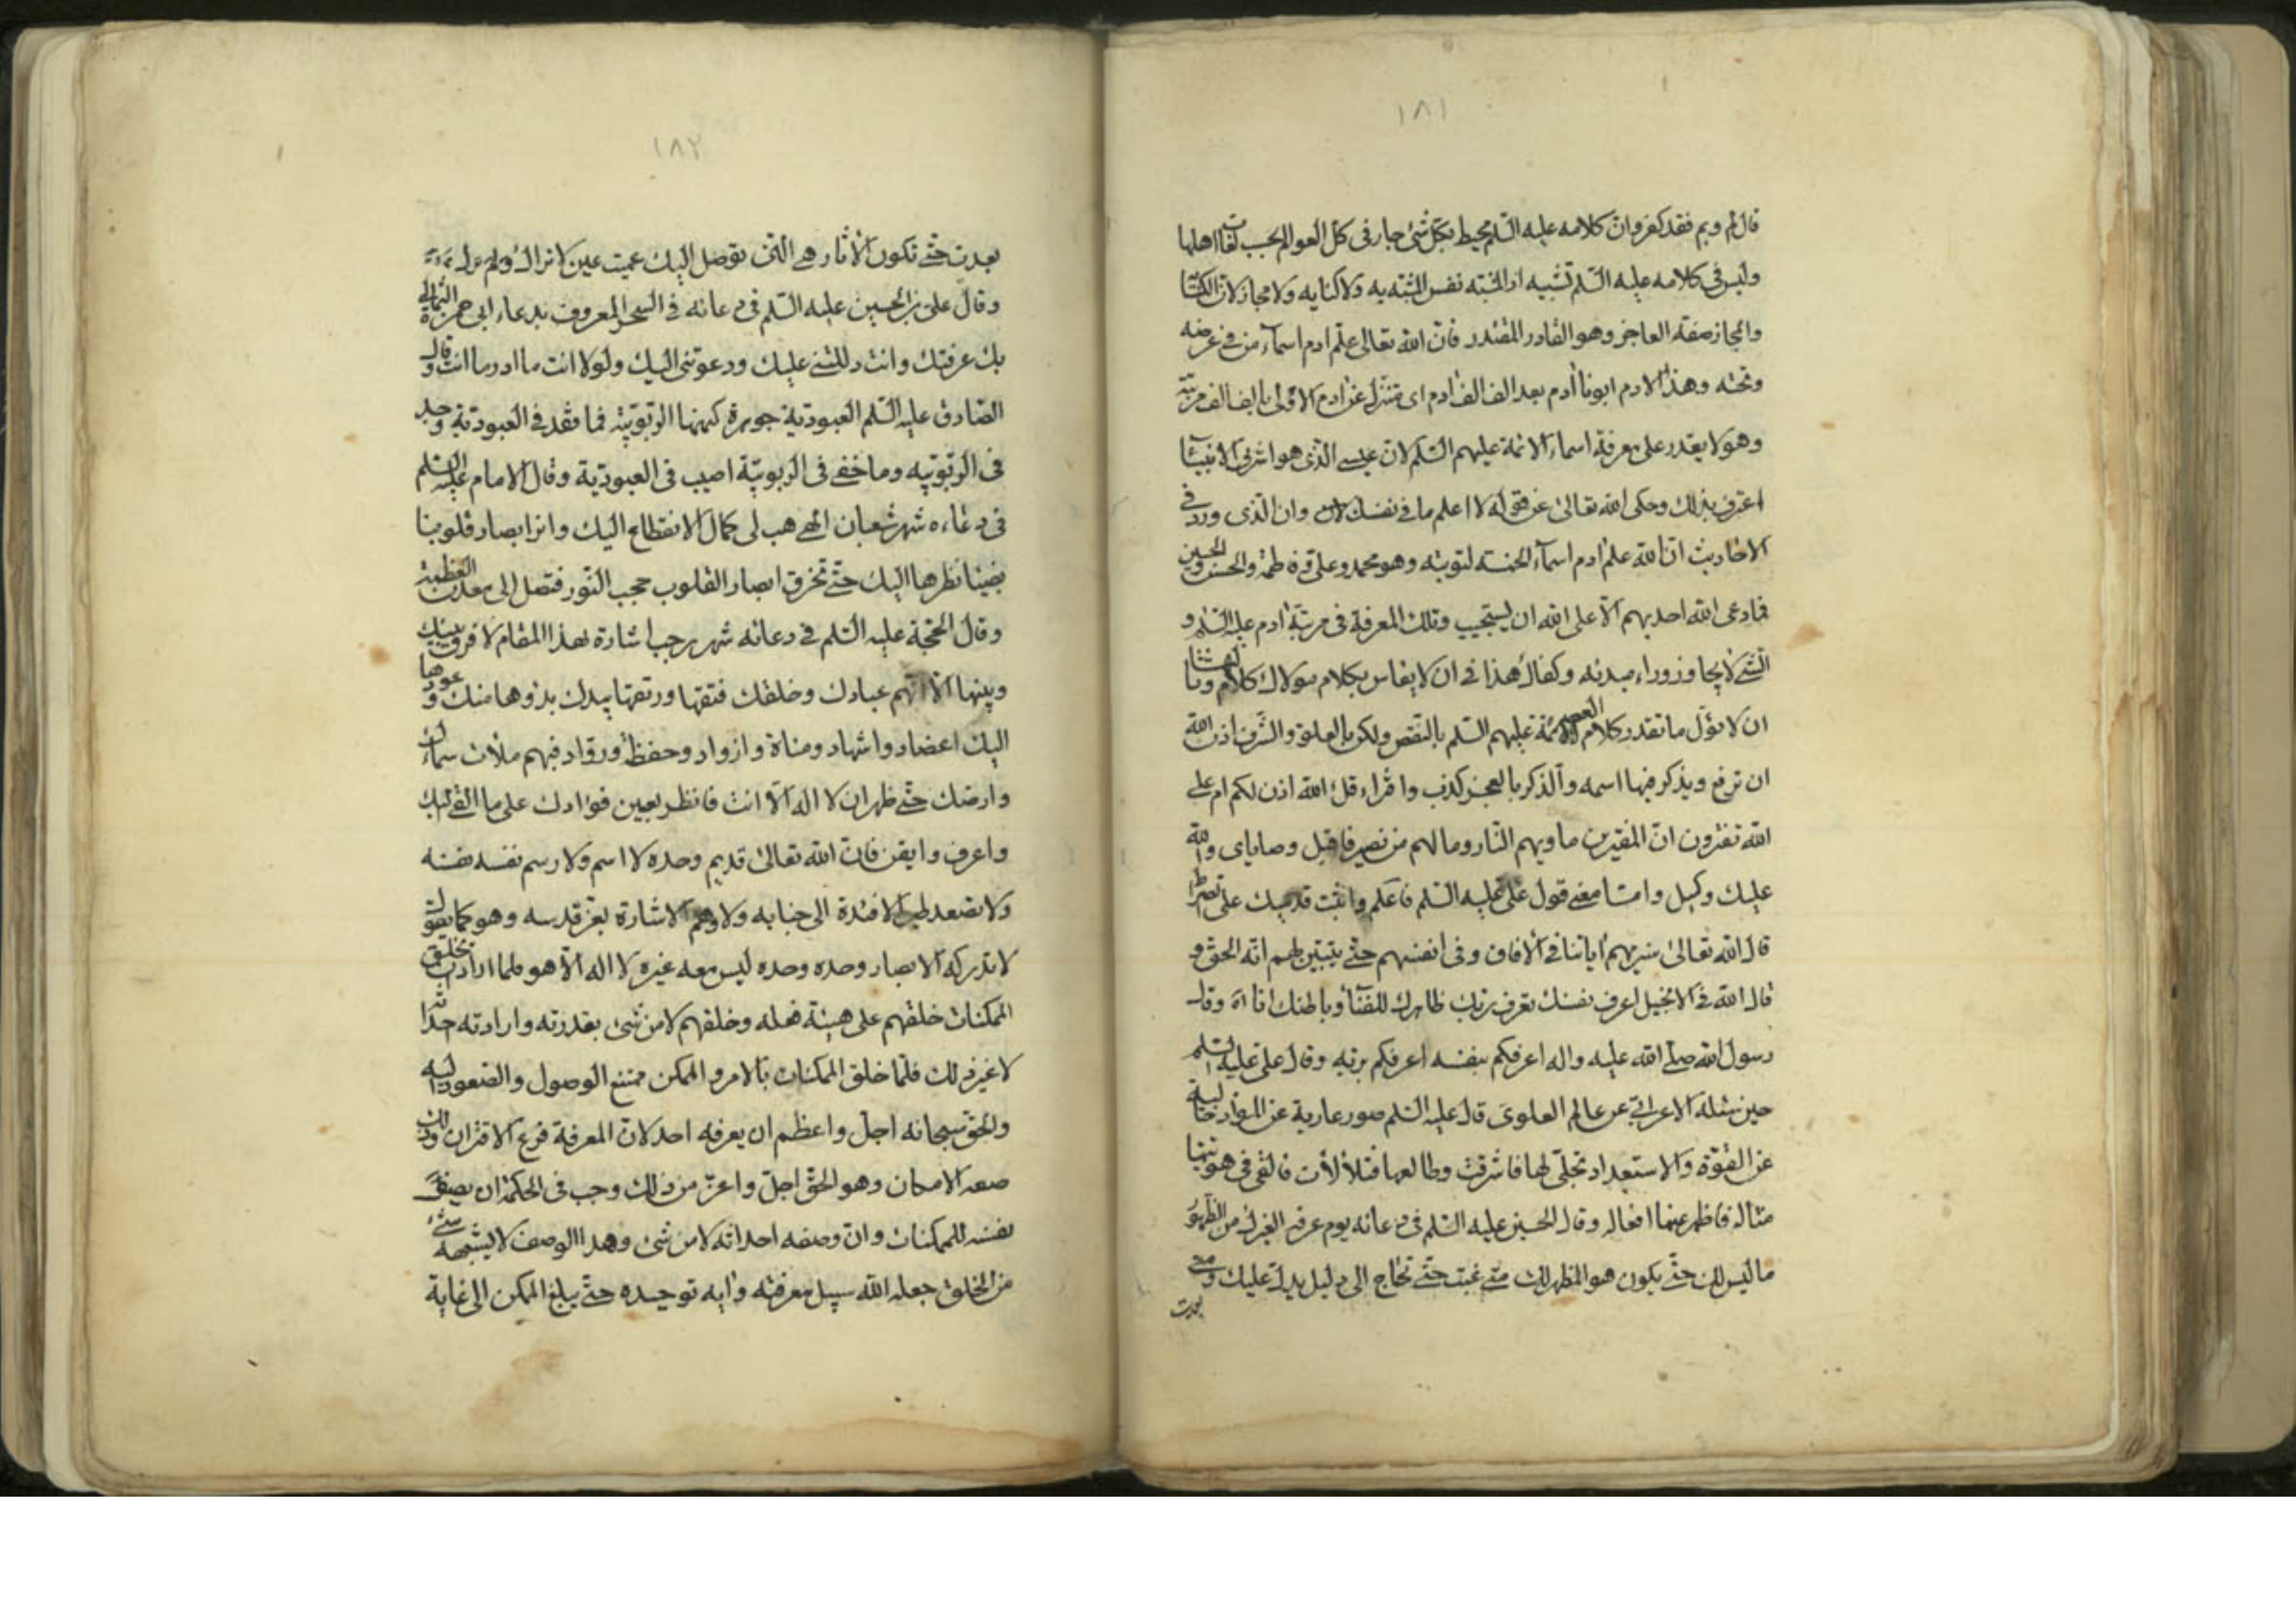 ١٨١
قال لم وبم فقد كفر وان كلامه عليه السّلم محيط بكل شئ جار فى كل العوالم بحسب لغات اهلها
وليس فى كلامه عليه السّلم تشبيه اذ المشبّه نفس المشبّه به ولا كنايه ولا مجاز لان الكناية
والمجاز صفة العاجز وهو القادر المقتدر فان الله تعالى علّم ادم اسمآء من فى عرضه
وتحته وهذا الادم ابونا ادم بعد الف الف ادم اى متنزل عن ادم الاولى بالف الف مرتبة
وهو لا يقدر على معرفة اسمآء الائمة عليهم السّلم لان عيسى الذى هو اشرف الانبيآء
اعترف بذلك وحكى الله تعالى عن قوله لا اعلم ما فى نفسك وان الذى ورد فى
الاحاديث ان الله علم ادم اسمآء الخمسة لتوبته وهو محمد وعلى وفاطمة والحسن والحسين
فما دعى الله احد بهم الا على الله ان يستجيب وتلك المعرفة فى مرتبة ادم عليه السّلم و
الشئ لا يجاوز وراء مبدئه وكفاك هذا فى ان لا يقاس بكلام مولاك كلام
ان لا تؤل ما تقدر كلام الائمة عليهم السّلم بالنقص ولكن بالعلو والشرف اذن الله
ان ترفع ويذكر فيها اسمه والذكر بالعجز كذب واقراء قل الله اذن لكم ام على
الله تفترون ان المفترين ماويهم النّار وما لهم من نصير فاقبل وصاياى والله
عليك وكيل وامّا معنى قول على عليه السّلم فاعلم واثبت قدميك على الصراط
قال الله تعالى سنريهم اياتنا فى الافاق وفى انفسهم حتّى يتبيّن لهم انّه الحق و
قال الله فى الانجيل اعرف نفسك تعرف ربّك ظاهرك للفنآء وباطنك انا اه وقال
رسول الله صلّى الله عليه واله اعرفكم بنفسه اعرفكم بربّه وقال على عليه السّلم
حين سئله الاعرابى عن عالم العلوى قال عليه السّلم صور عارية عن المواد خالية
عن القوّة والاستعداد تجلّى لها فاشرقت وطالعها فتلألأت فالقى فى هويّتها
مثاله فاظهر عنها افعاله وقال الحسين عليه السّلم فى دعائه يوم عرفه الغيرك من الظهور
ما ليس لك حتّى يكون هو المظهر لك متى غبت حتّى تحتاج الى دليل يدلّ عليك ومتى
بعدت
١٨٢
بعدت حتّى تكون الاثار هى التى توصل اليك عميت عين لا تراك ولم
وقال على بن الحسين عليه السّلم فى دعائه فى السحر المعروف بدعاء ابى حمزة الثمالى
بك عرفتك وانت دللتنى عليك ودعوتنى اليك ولولا انت ما ادر ما انت وقال
الصّادق عليه السّلم العبودية جوهرة كنهها الربوبيّة فما فقد فى العبودية وجد
فى الربوبيه وما خفى فى الربوبيّة اصيب فى العبوديّة وقال الامام عليه السلم
فى دعاءه شهر شعبان الهى هب لى كمال الانقطاع اليك وانر ابصار قلوبنا
بضيآء نظرها اليك حتّى تخرق ابصار القلوب حجب النّور فتصل الى معدن العظمة
وقال الحجّة عليه السّلم فى دعائه شهر رجب اشارة بهذا المقام لا فرق بينك
وبينها الا انّهم عبادك وخلقك فتقها ورتقها بيدك بدؤها منك وعودها
اليك اعضاد واشهاد ومناة وازواد وحفظة ورواد فبهم ملأت سماءك
وارضك حتّى ظهر ان لا اله الا انت فانظر بعين فؤادك على ما القى اليك
واعرف وايقن فان الله تعالى قديم وحده لا اسم ولا رسم نفسه نفسه
ولا تصعد طير الافئدة الى جنابه ولا وهم الاشارة بعز قدسه وهو كما يقول
لا تدركه الابصار وحده وحده ليس معه غيره لا اله الا هو فلما اراد بخلق
الممكنات خلقهم على هيئة فعله وخلقهم لا من شئ بقدرته وارادته
لا غير ذلك فلمّا خلق الممكنات بالامر والممكن ممتنع الوصول والصّعود اليه
والحق سبحانه اجل واعظم ان يعرفه احد لان المعرفة فرع الاقتران وذلك
صفه الامكان وهو الحق اجل واعز من ذلك وجب فى الحكمة ان يصف
نفسه للممكنات وان وصفه احداثه لا من شئ وهذا الوصف لا يشبهه شئ
من الخلق جعله الله سبيل معرفته وايه توحيده حتّى يبلغ الممكن الى غاية